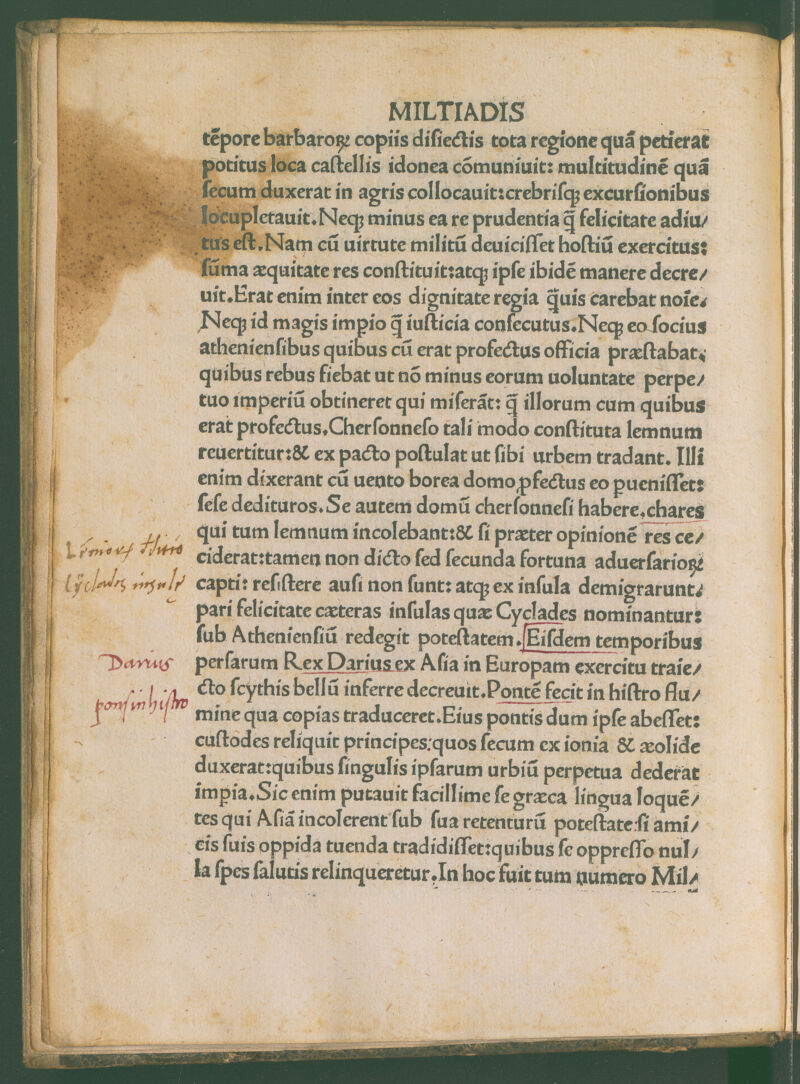 MILTIADIS
tēpore barbaroꝝ copiis disiectis tota regione quā petierat
potitus loca castellis idonea cōmuniuit: multitudinē quā
secum duxerat in agris collocauit:crebrisqꝫ excursionibus
locupletauit.Neqꝫ minus ea re prudentia q̄ felicitate adiu/
tus est.Nam cū uirtute militū deuicisset hostiū exercitus:
sūma æquitate res constituit:atqꝫ ipse ibidē manere decre/
uit.Erat enim inter eos dignitate regia q̄uis carebat noīe.
Neqꝫ id magis impio q̄ iusticia consecutus.Neqꝫ eo socius
atheniensibus quibus cū erat profectus officia præstabat.
quibus rebus fiebat ut nō minus eorum uoluntate perpe/
tuo imperiū obtineret qui miserāt: q̄ illorum cum quibus
erat profectus.Chersonneso tali modo constituta lemnum
reuertitur:& ex pacto postulat ut sibi urbem tradant. Illi
enim dixerant cū uento borea domo ꝓfectus eo pueniſſet:
sese dedituros.Se autem domū chersonnesi habere.chares
qui tum lemnum incolebant:& si præter opinionē res ce/
ciderat:tamen non dicto sed secunda fortuna aduersarioꝝ
capti: resistere ausi non sunt: atqꝫ ex insula demigrarunt.
pari felicitate cæteras insulas quæ Cyclades nominantur:
sub Atheniensiū redegit potestatem.Eisdem temporibus
persarum Rex Darius ex Asia in Europam exercitu traie/
cto scythis bellū inferre decreuit.Pontē fecit in histro flu/
mine qua copias traduceret.Eius pontis dum ipse abesset:
custodes reliquit principes:quos secum ex ionia & æolide
duxerat:quibus singulis ipsarum urbiū perpetua dederat
impia.Sic enim putauit facillime se græca lingua loquē/
tes qui Asiā incolerent sub sua retenturū potestate:si ami/
cis suis oppida tuenda tradidisset:quibus se oppresso nul/
la spes salutis relinqueretur.In hoc fuit tum numero Mil/
Darius
pons in histro